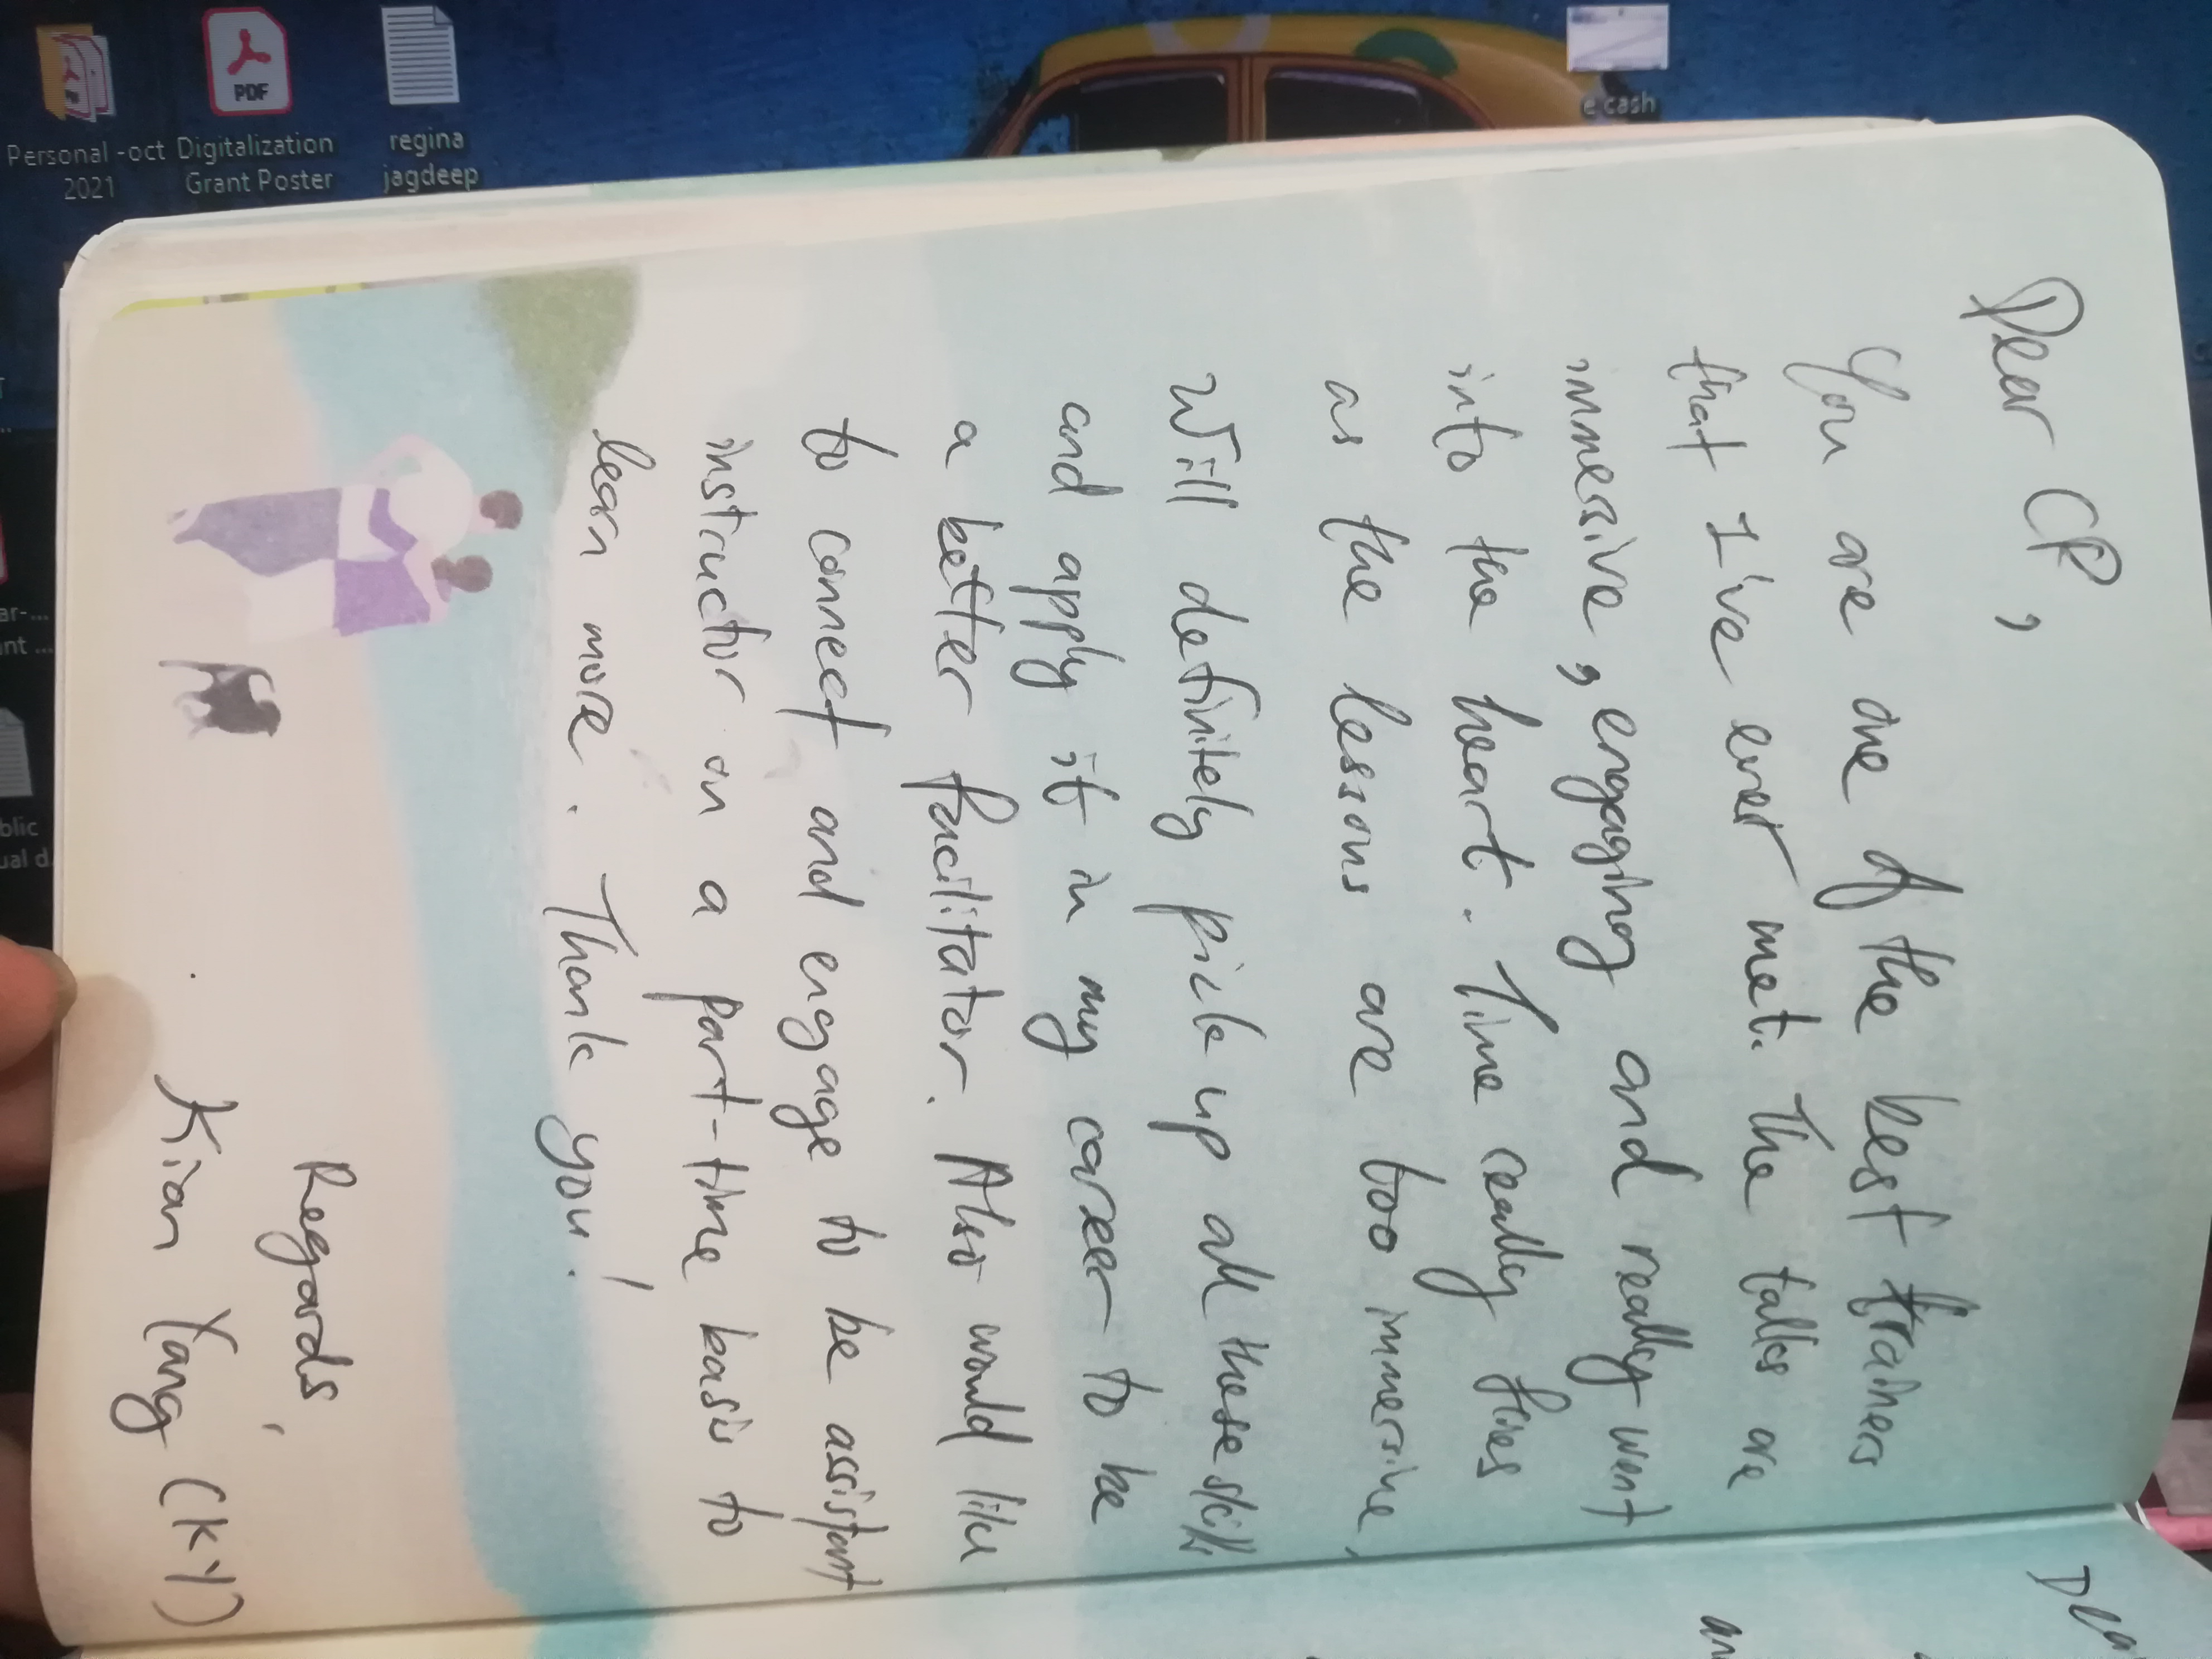 Personal -oct
2021
Digitalization
Grant Poster
PDF
regina
jagdeep
e cash
Dear CP,
You are one of the best trainers
that I've ever met. The talks are
immersive, engaging and really went
into the heart. Time really flies
as the lessons are too immersive,
Will definitely pick up all these skills
and apply it in my career to be
a better facilitator. Also would like
to connect and engage to be assistant
instructor on a part-time basis to
learn more. Thank you!
Regards,
Kian Yang (KY)